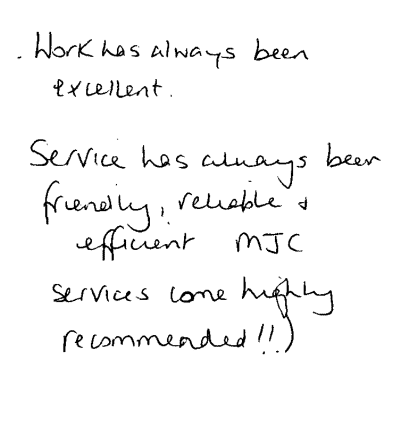 . Work has always been
excellent.
Service has always been
friendly, reliable &
efficient MJC
services come highly
recommended!!)